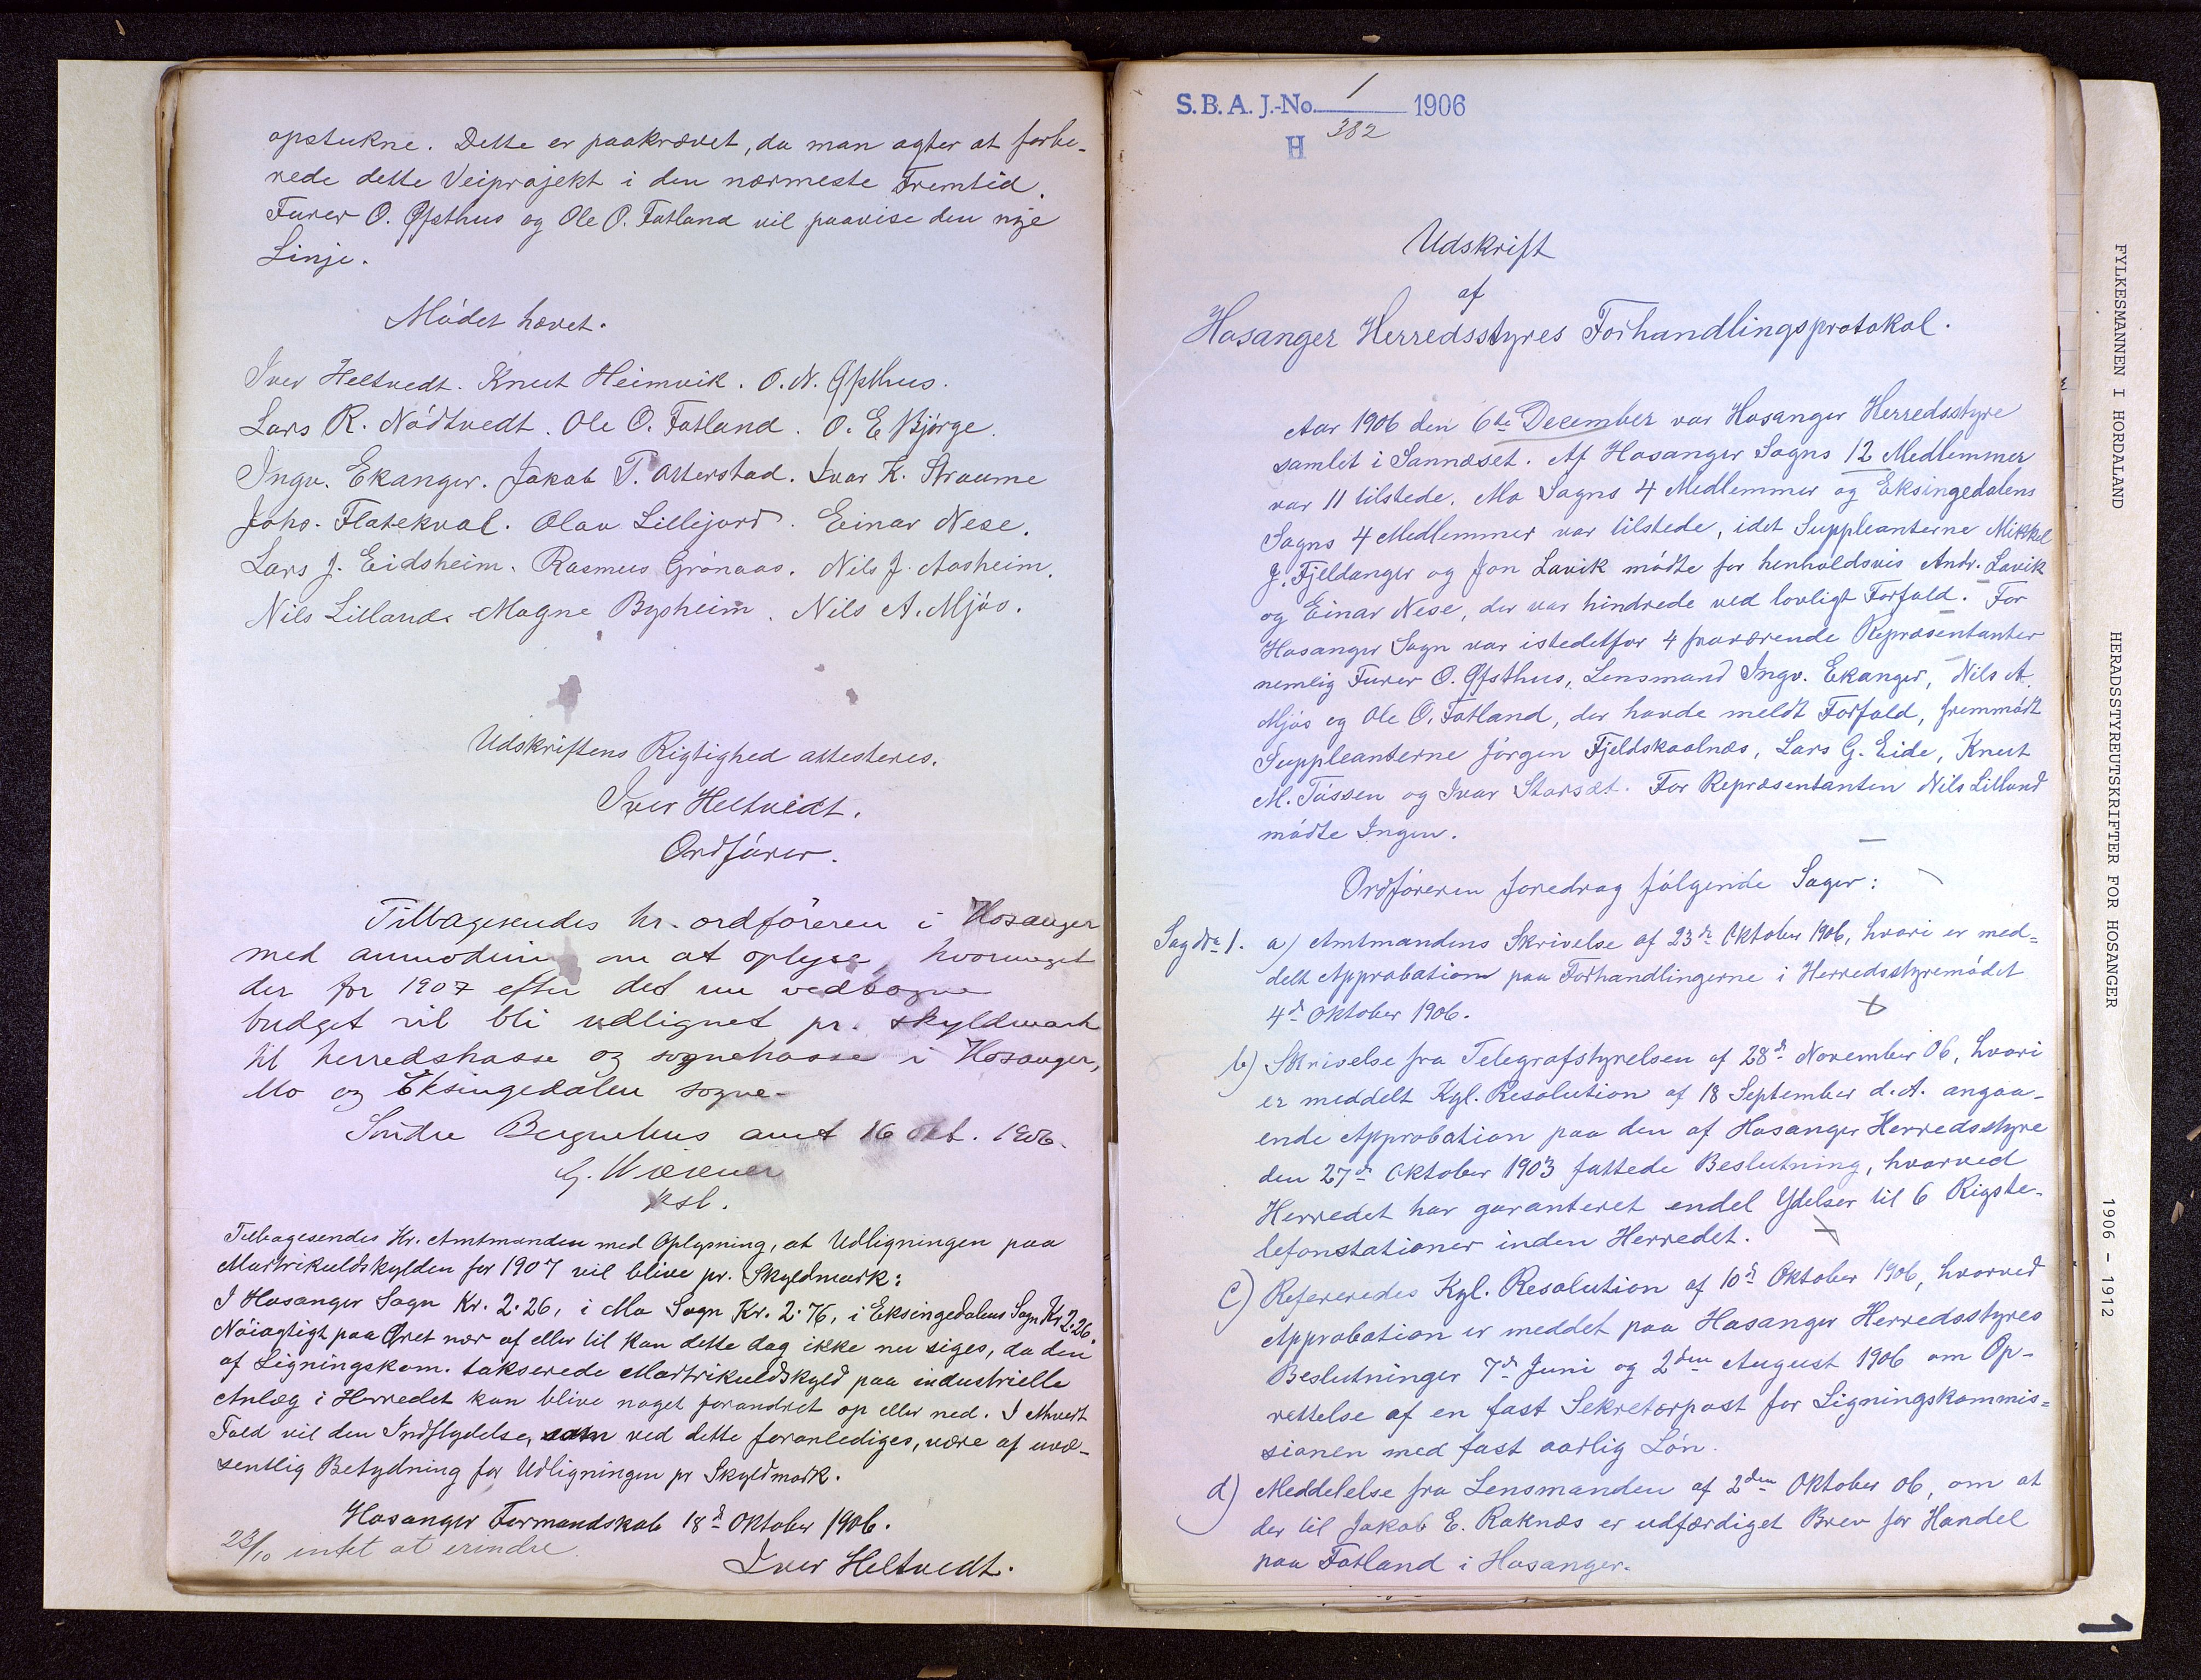 opstukne. Dette er paakrævet, da man agter at forbe-
rede dette Veiprojekt i den nærmeste Fremtid.
Furer O. Øfsthus og Ole O. Fatland vil paavise den nye
Linje.
Mødet hævet.
Iver Heltvedt. Knut Heimvik. O. N. Øfsthus.
Lars R. Nødtvedt. Ole O. Fatland. O. E Bjørge.
Ingv. Ekanger. Jakob T. Otterstad. Ivar K. Straume
Johs. Flatekval. Olav Lillejord. Einar Nese.
Lars J. Eidsheim. Rasmus Grønaas. Nils J. Aasheim.
Nils Lilland. Magne Bysheim. Nils A. Mjøs.
Udskriftens Rigtighed attesteres.
Iver Heltvedt.
Ordfører.
Tilbagesendes hr. ordføreren i Hosanger
med anmodning om at oplyse, hvormeget
der for 1907 efter det nu vedtagne
budget vil bli udlignet pr. skyldmark
til herredskasse og sognekasse i Hosanger,
Mo og Eksingedalen sogne.
Søndre Bergenhus amt 16 okt. 1906.
kst.
Tilbagesendes Hr. Amtmanden med Oplysning, at Udligningen paa
Martrikuldskylden for 1907 vil blive pr. Skyldmark:
I Hosanger Sogn Kr. 2.26, i Mo Sogn Kr. 2.76, i Eksingedalens Sogn Kr 2.26.
Nøiagtigt paa Øret nær af eller til kan dette dog ikke nu siges, da den
af Ligningskom. takserede Martrikuldskyld paa industrielle
Anlæg i Herredet kan blive noget forandret op eller ned. I ethvert
Fald vil den Indflydelse, som ved dette foranlediges, være af uvæ-
sentlig Betydning for Udligningen pr Skyldmark.
Hosanger Formandskab 18d Oktober 1906.
23/10 intet at erindre.
Iver Heltvedt.
S.B.A. J.-No. 1 1906
H 382
Udskrift
af
Hosanger Herredsstyres Forhandlingsprotokol.
Aar 1906 den 6te December var Hosanger Herredsstyre
samlet i Sannæset. Af Hosanger Sogns 12 Medlemmer
var 11 tilstede. Mo Sogns 4 Medlemmer og Eksingedalens
Sogns 4 Medlemmer var tilstede, idet Suppleanterne Mikkel
J. Fjeldanger og Jon Lavik mødte for henholdsvis Andr. Lavik
og Einar Nese, der var hindrede ved lovligt Forfald. For
Hosanger Sogn var istedetfor 4 fraværende Repræsentanter
nemlig Furer O. Øfsthus, Lensmand Ingv. Ekanger, Nils A.
Mjøs og Ole O. Fatland, der havde meldt Forfald, fremmødt
Suppleanterne Jørgen Fjeldskaalnæs, Lars G. Eide, Knut
M. Tøssen og Ivar Storsæt. For Repræsentanten Nils Lilland
mødte Ingen.
Ordføreren foredrag følgende Sager:
Sag No 1. a) Amtmandens Skrivelse af 23de Oktober 1906, hvori er med=
delt Approbation paa Forhandlingerne i Herredsstyremødet
4d Oktober 1906.
b) Skrivelse fra Telegrafstyrelsen af 28d November 06, hvori
er meddelt Kgl. Resolution af 18 September d. A. angaa-
ende Approbation paa den af Hosanger Herredsstyre
den 27de Oktober 1903 fattede Beslutning, hvorved
Herredet har garanteret endel Ydelser til 6 Rigste-
lefonstationer inden Herredet.
c) Refereredes Kgl. Resolution af 10d Oktober 1906, hvorved
Approbation er meddet paa Hosanger Herredsstyres
Beslutninger 7d Juni og 2den August 1906 om Op-
rettelse af en fast Sekretærpost for Ligningskommis=
sionen med fast aarlig Løn.
d) Meddelelse fra Lensmanden af 2den Oktober 06, om at
der til Jakob E. Raknæs er udfærdiget Brev for Handel
paa Fatland i Hosanger.
FYLKESMANNEN I HORDALAND HERADSSTYREUTSKRIFTER FOR HOSANGER 1906 - 1912
1